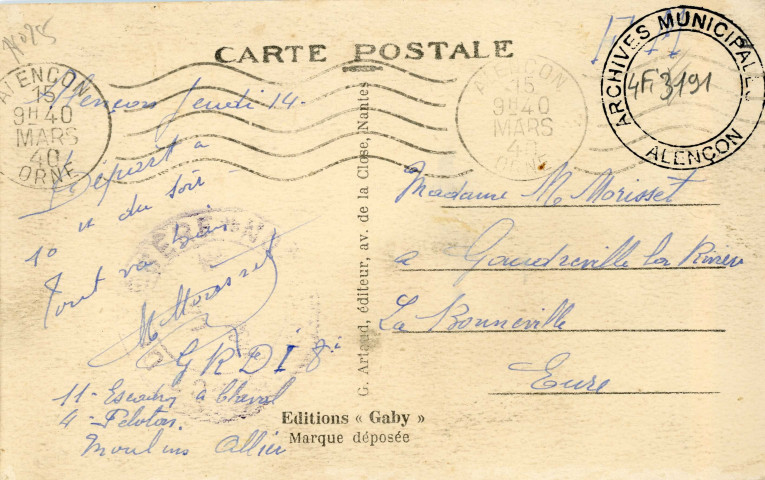 CARTE POSTALE
ALENÇON
15
9H40
MARS
40
ORNE
ALENÇON
15
9H40
MARS
40
ORNE
ARCHIVES MUNICIPALES
4Fi 3191
ALENÇON
Alençon Jeudi 14-
Départ a
10 H du Soir
Tout va bien
M Morisset
GRDI 8e
11- Escadron à Cheval
4- Peloton
Moulins Allier
G. Artaud, éditeur, av. de la Close, Nantes
Editions « Gaby »
Marque déposée
Madame M. Morisset
a Gaudreville la Rivière
La Bonneville
Eure